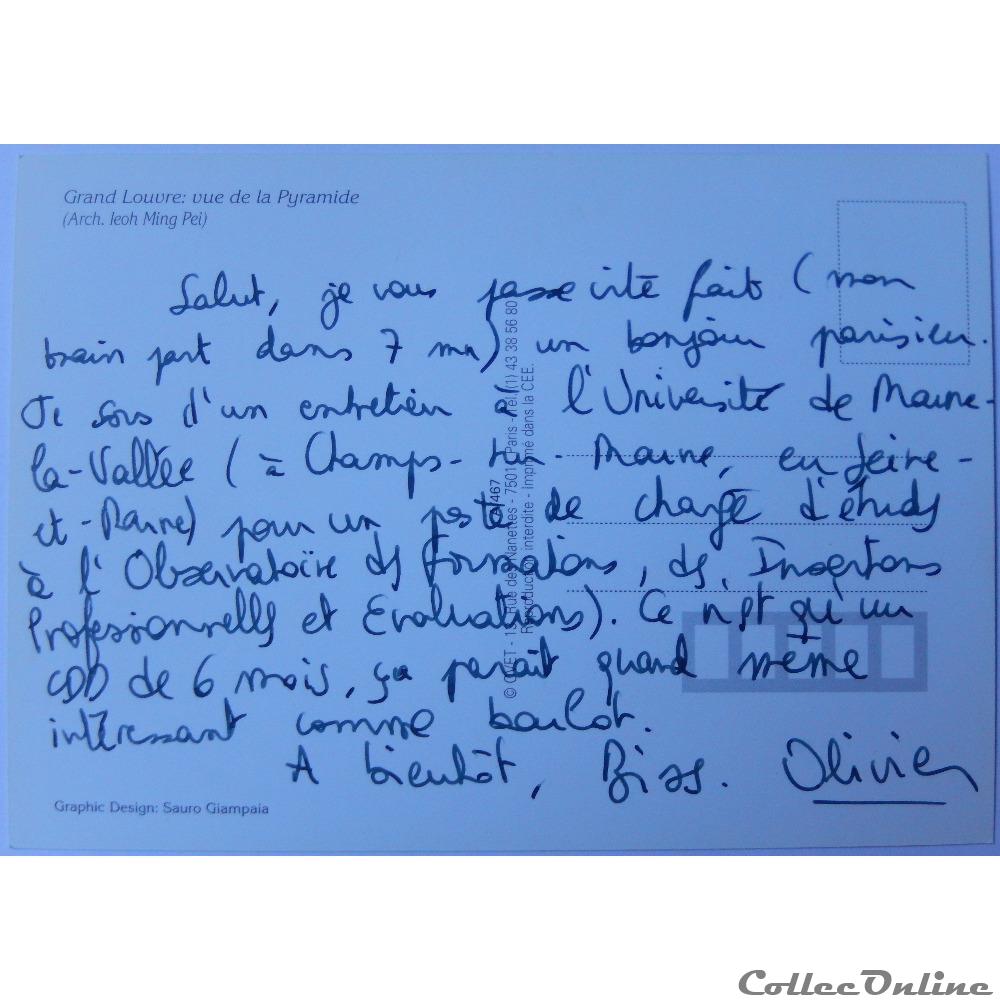 Grand Louvre: vue de la Pyramide
(Arch. Ieoh Ming Pei)
Salut, je vous passe vite fait (mon
train part dans 7 mn) un bonjour parisien.
Je sors d'un entretien à l'Université de Marne-
la-Vallée (à Champs-sur-Marne, en Seine-
et-Marne) pour un poste de chargé d'études
à l'Observatoire des Formations, des Insertions
Professionnelles et Evaluations). Ce n'est qu'un
CDD de 6 mois, ça paraît quand même
intéressant comme boulot.
A bientôt, Bises. Olivier
Graphic Design: Sauro Giampaia
Nanettes - 75011 Paris - Tél. (1) 43 38 56 80
Reproduction interdite - Imprimé dans la CEE.
CollecOnline